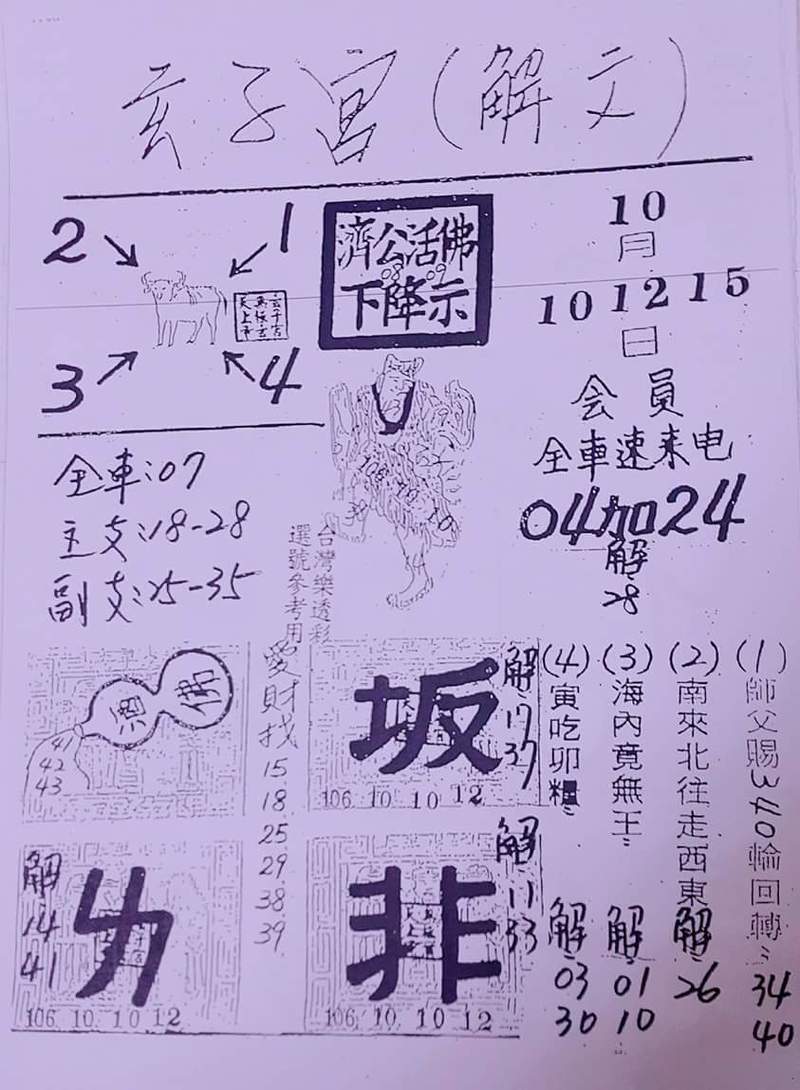 玄子宮(解文)
2
1
3
4
濟公活佛
08 09
下降示
10
月
10 12 15
日
会員
全車速来电
04加24
解
28
全車:07
主支:18-28
副支:25-35
台灣樂透彩
選號參考用
佛
酒
41
42
43
愛財找
15
18
25
29
38
39
坂
106. 10. 10 12
解
17
37
解
14
41
106. 10. 10 12
非
106. 10. 10 12
解
11
33
(1)師父賜340輪回轉
34
40
(2)南來北往走西東
解
26
(3)海內竟無王
解
01
10
(4)寅吃卯糧
解
03
30